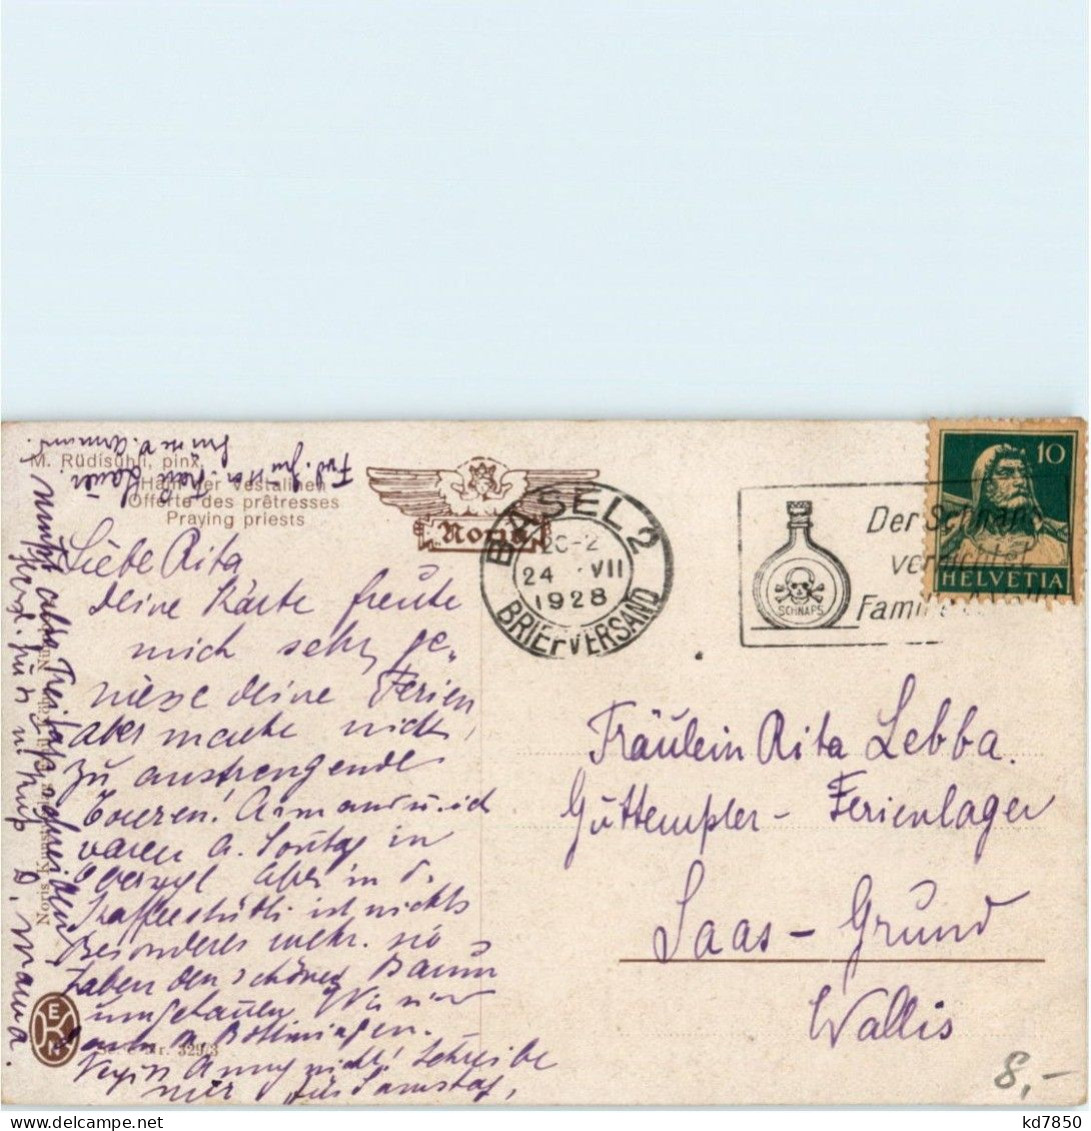 M. Rüdisühli, pinx.
Hain der Vestalinen
Offerte des prêtresses
Praying priests
Noris
BASEL 2
24. VII
1928
BRIEFVERSAND
SCHNAPS
Der
Famil
10
HELVETIA
Liebe Rita
Deine Karte freute
mich sehr, ge-
niesse deine Ferien
aber mache nicht
zu anstrengende
Touren! Armand u. ich
waren a. Sontag in
aber in d.
Kaffeestübli ist nichts
Besonderes mehr. sie
haben den schönen Baum
umgehauen. Wir
Bottmingen.
Vergiss nicht! Schreibe
mir für Samstag,
Mama.
Fräulein Rita Lebba.
Guttempler- Ferienlager
Saas-Grund
Wallis
EKN
Serie Nr. 329/3
8,-
kd7850